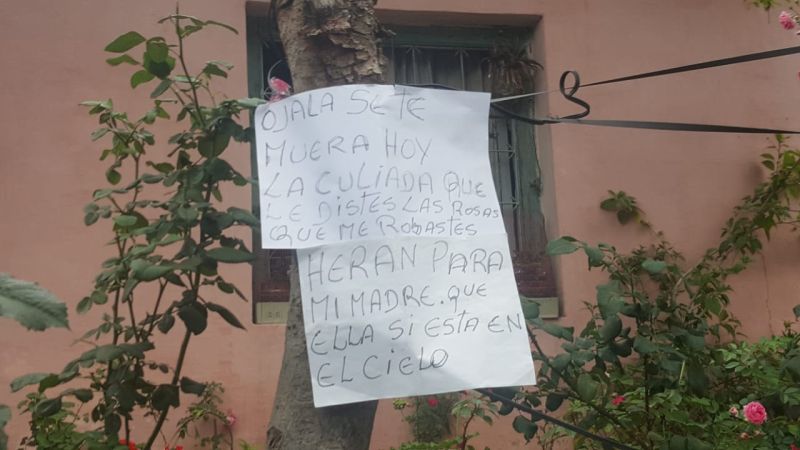 OJALA SE TE
MUERA HOY
LA CULIADA QUE
LE DISTES LAS ROSAS
QUE ME ROBASTES
HERAN PARA
MI MADRE. QUE
ELLA SI ESTA EN
EL CIELO